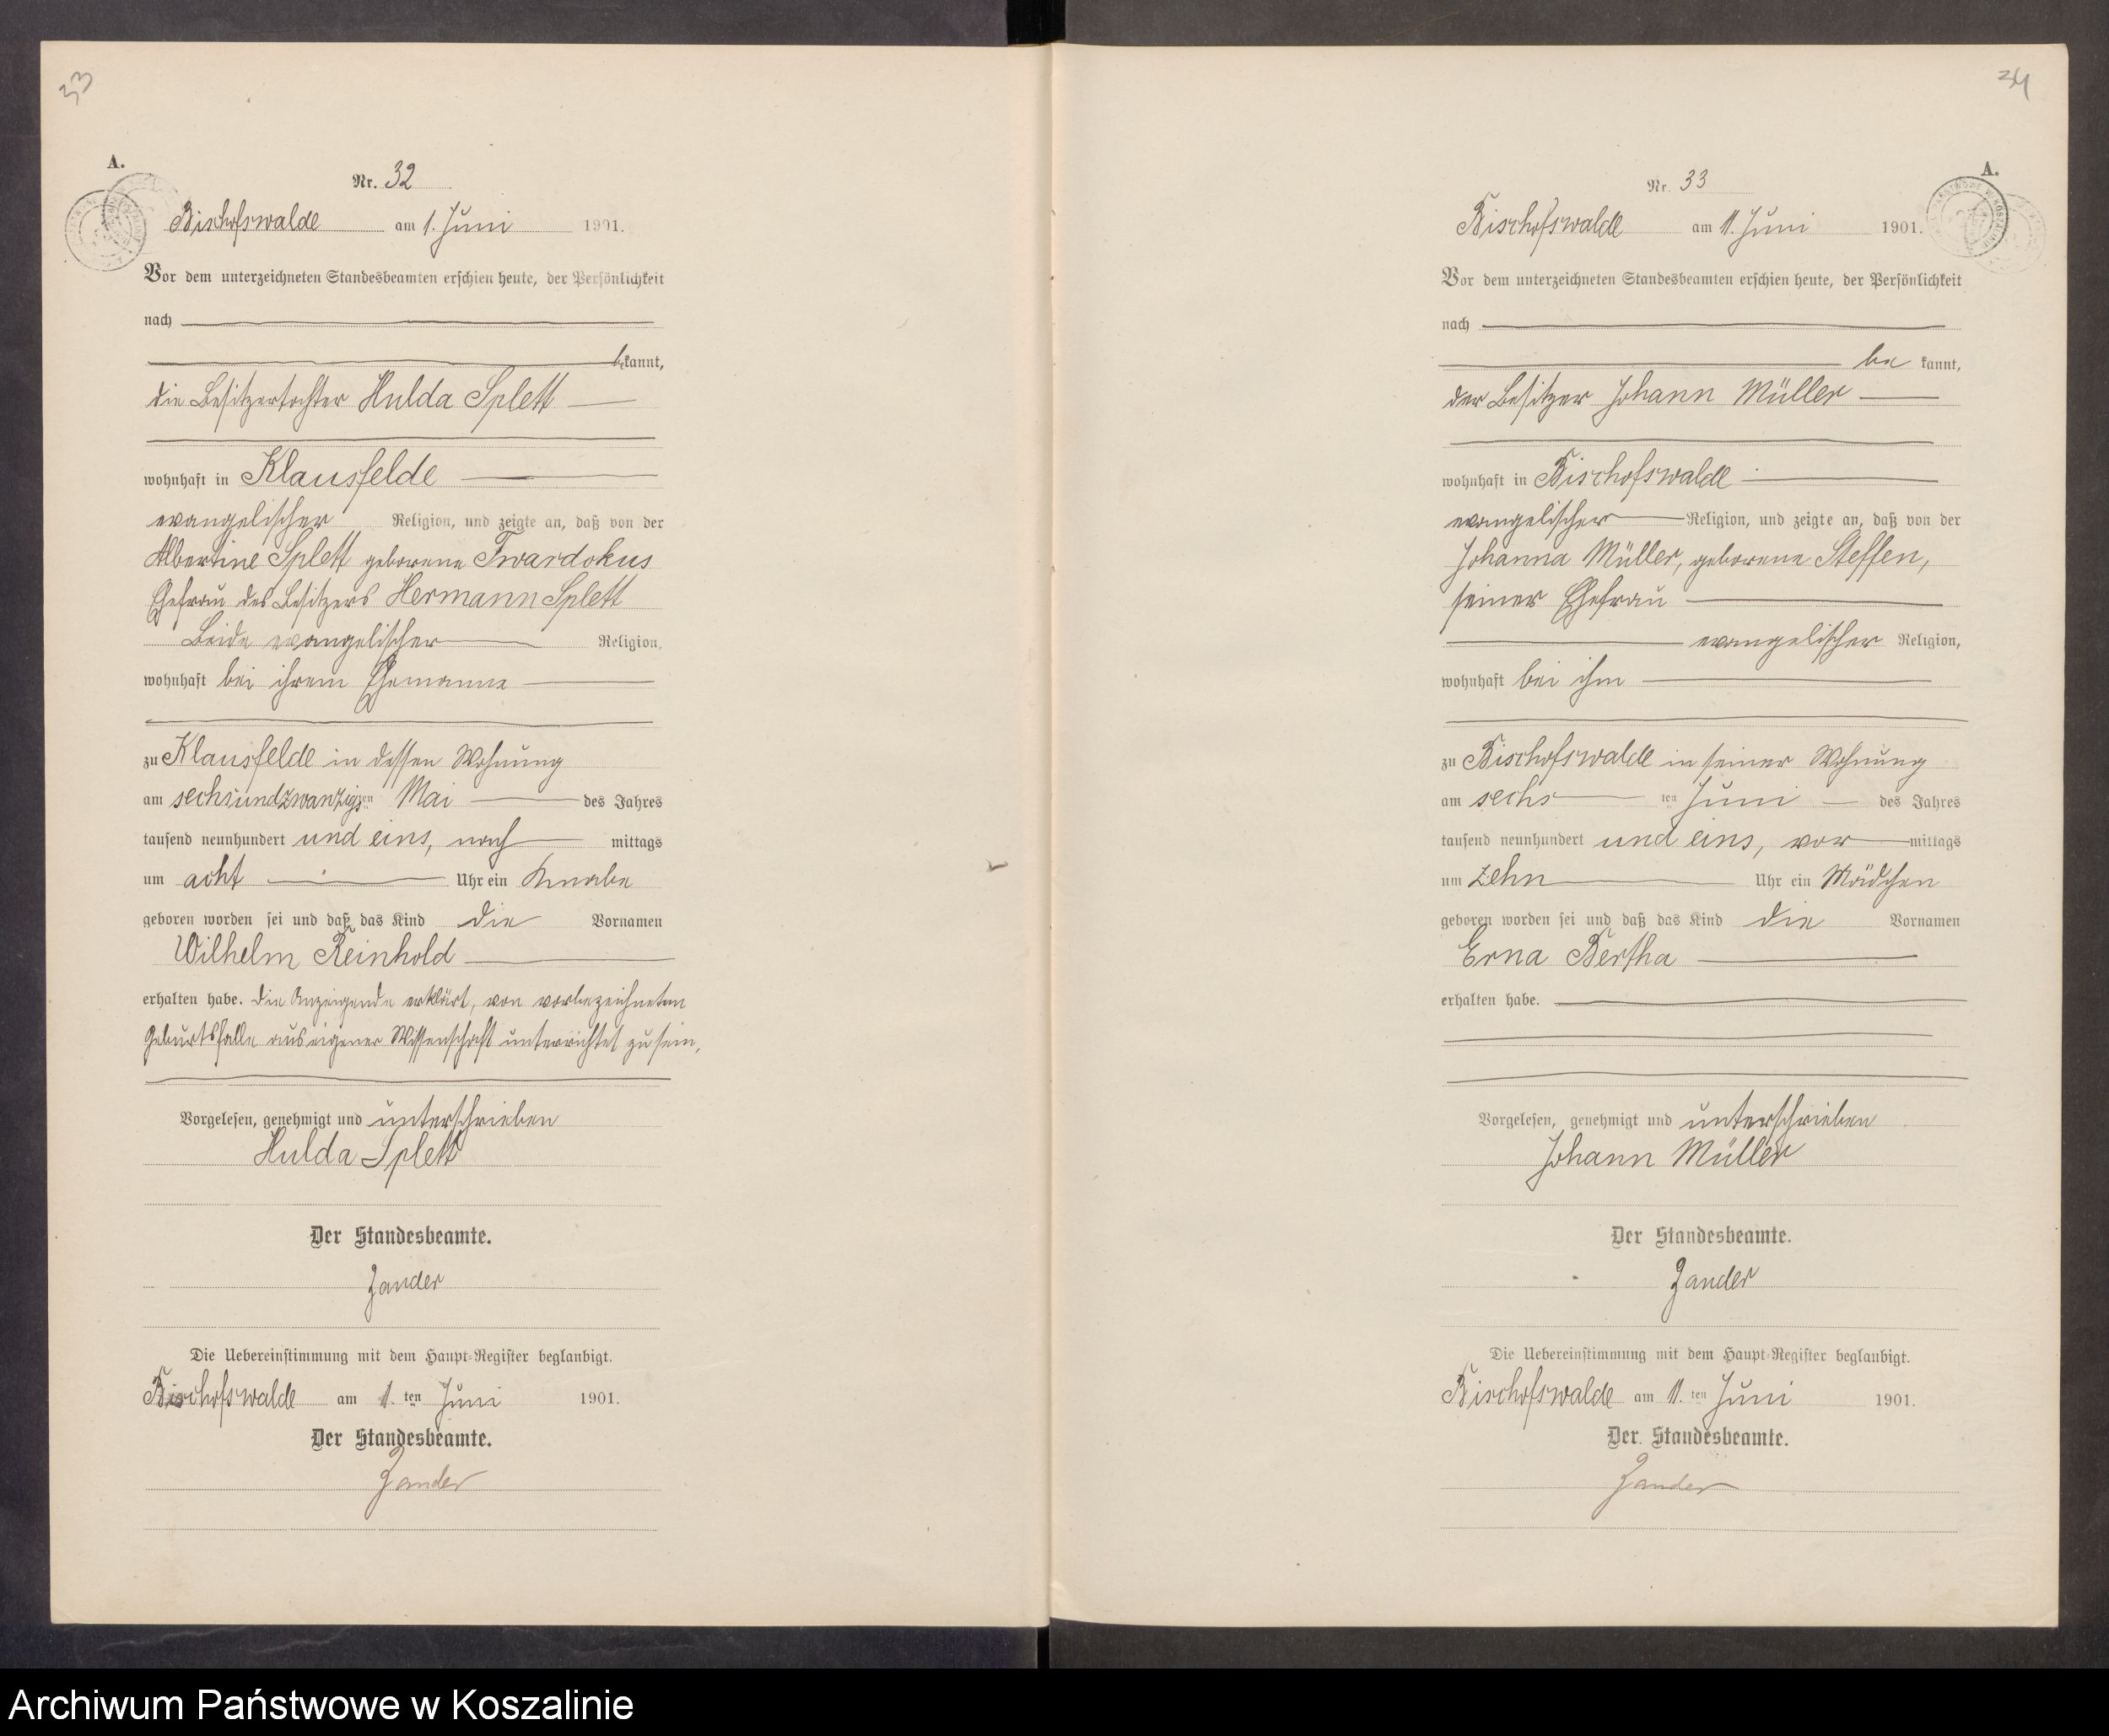 33
A.
Nr. 32
Bischofswalde am 1. Juni 1901.
Vor dem unterzeichneten Standesbeamten erschien heute, der Persönlichkeit
nach
bekannt,
die Besitzertochter Hulda Splett
wohnhaft in Klausfelde
evangelischer Religion, und zeigte an, daß von der
Albertine Splett geborene Twardokus
Ehefrau des Besitzers Hermann Splett
Beide evangelischer Religion,
wohnhaft bei ihrem Ehemanne
zu Klausfelde in dessen Wohnung
am sechsundzwanzigsten Mai des Jahres
tausend neunhundert und eins, nach mittags
um acht Uhr ein Knabe
geboren worden sei und daß das Kind die Vornamen
Wilhelm Reinhold
erhalten habe. Die Anzeigende erklärt, von vorbezeichnetem
Geburtsfalle aus eigener Wissenschaft unterrichtet zu sein,
Vorgelesen, genehmigt und unterschrieben
Hulda Splett
Der Standesbeamte.
Zander
Die Uebereinstimmung mit dem Haupt-Register beglaubigt.
Bischofswalde am 1. ten Juni 1901.
Der Standesbeamte.
Zander
34
A.
Nr. 33
Bischofswalde am 11. Juni 1901.
Vor dem unterzeichneten Standesbeamten erschien heute, der Persönlichkeit
nach
be kannt,
der Besitzer Johann Müller
wohnhaft in Bischofswalde
evangelischer Religion, und zeigte an, daß von der
Johanna Müller, geborene Steffen,
seiner Ehefrau
evangelischer Religion,
wohnhaft bei ihm
zu Bischofswalde in seiner Wohnung
am sechs ten Juni des Jahres
tausend neunhundert und eins, vor mittags
um zehn Uhr ein Mädchen
geboren worden sei und daß das Kind die Vornamen
Erna Bertha
erhalten habe.
Vorgelesen, genehmigt und unterschrieben
Johann Müller
Der Standesbeamte.
Zander
Die Uebereinstimmung mit dem Haupt-Register beglaubigt.
Bischofswalde am 11. ten Juni 1901.
Der Standesbeamte.
Zander
Archiwum Państwowe w Koszalinie